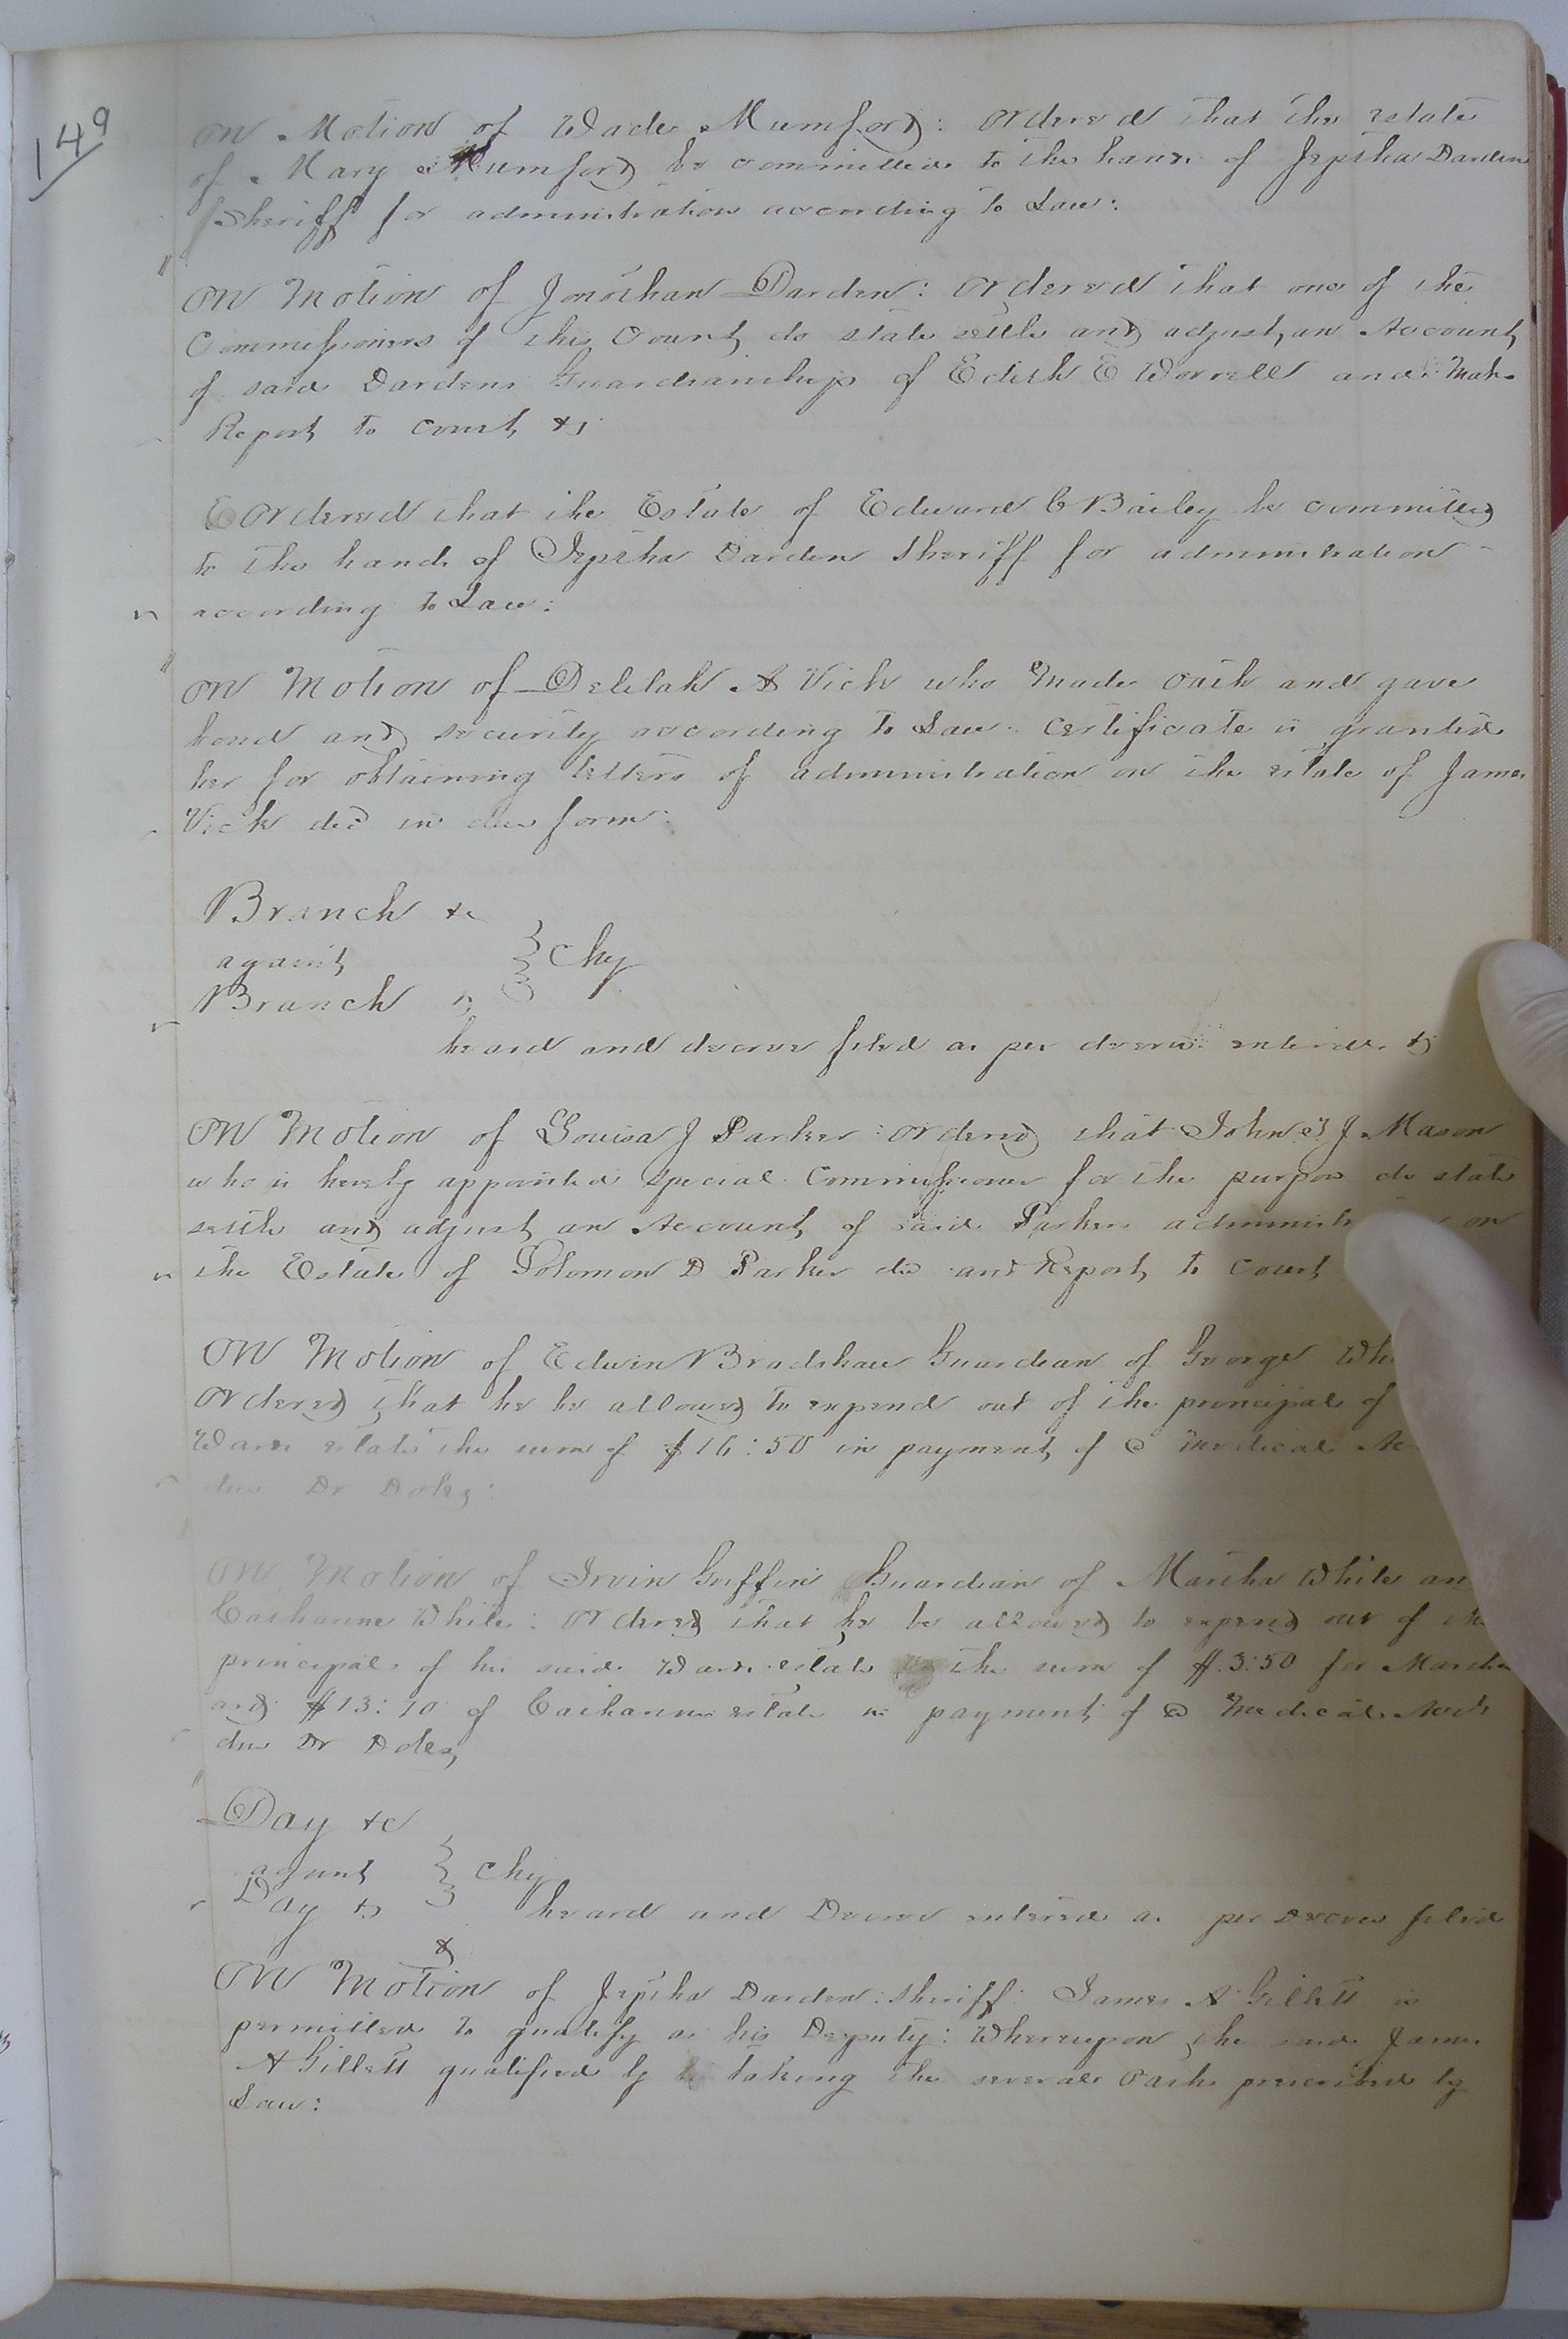 149
On Motion of Wade Mumford: Ordered that the estate
of Mary Mumford be committed to the hands of Jeptha Darden
Sheriff for administration according to Law:
On Motion of Jonathan Darden: Ordered that one of the
Commissioners of this Court, do state settle and adjust, an Account,
of said Dardens Guardianship of Edith E Worrell and Make
Report to Court &c
Ordered that the Estate of Edward C Bailey be committed
to the hands of Jeptha Darden Sheriff for administration
according to Law:
On Motion of Delilah A Vick who Made Oath and gave
bond and security according to Law: Certificate is granted
her for obtaining letters of administration on the estate of James
Vick decd in due form:
Branch &c
against
Chy
Branch &c
heard and decree filed as per decree entered &c
On Motion of Louisa J Parker: Ordered that John J Mason
who is hereby appointed Special Commissioner for the purpose do state
settle and adjust an Account, of said Parkers on
the Estate of Solomon D Parker decd and Report, to Court
On Motion of Edwin Bradshaw Guardian of George
Ordered that he be allowed to expend out of the principal of
Wards estate the sum of $16:50 in payment, of a Medical
due Dr Doles:
On Motion of Irvin Griffin Guardian of Martha White and
Catharine White: Ordered that he be allowed to expend out of the
principal of his said Wards estate the sum of $3:50 for Martha
and $13:70 of Catharines estate in payment, of a Medical Acct
due Dr Doles,
Day &c
against
Chy
Day &c heard and Decree entered as per Decree filed
&
On Motion of Jeptha Darden Sheriff: James A Gillett is
permitted to qualify as his Deputy: Whereupon the said James
A Gillett qualified by taking the several Oaths prescribed by
Law: